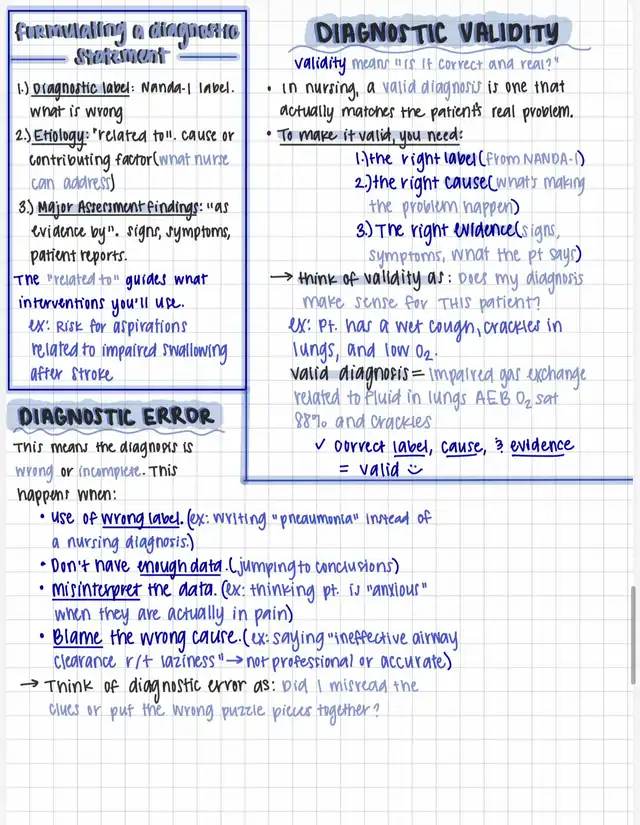 Formulating a diagnostic
statement
1.) Diagnostic label: Nanda-I label.
what is wrong
2.) Etiology: "related to". cause or
contributing factor (what nurse
can address)
3.) Major Assessment findings: "as
evidence by". signs, symptoms,
patient reports.
The "related to" guides what
interventions you'll use.
ex: Risk for aspirations
related to impaired swallowing
after stroke
DIAGNOSTIC VALIDITY
validity means "is it correct and real?"
• In nursing, a valid diagnosis is one that
actually matches the patient's real problem.
• To make it valid, you need:
1.) the right label (from NANDA-I)
2.) the right cause (what's making
the problem happen)
3.) The right evidence (signs,
symptoms, what the pt says)
→ think of validity as: Does my diagnosis
make sense for THIS patient?
ex: Pt. has a wet cough, crackles in
lungs, and low O2.
valid diagnosis = impaired gas exchange
related to fluid in lungs AEB O2 sat
88% and crackles
✓ correct label, cause, & evidence
= valid :)
DIAGNOSTIC ERROR
This means the diagnosis is
wrong or incomplete. This
happens when:
• use of wrong label. (ex: writing "pneaumonia" instead of
a nursing diagnosis.)
• Don't have enough data. (jumping to conclusions)
• misinterpret the data. (ex: thinking pt. is "anxious"
when they are actually in pain)
• Blame the wrong cause. (ex: saying "ineffective airway
clearance r/t laziness" → not professional or accurate)
→ Think of diagnostic error as: Did I misread the
clues or put the wrong puzzle pieces together?